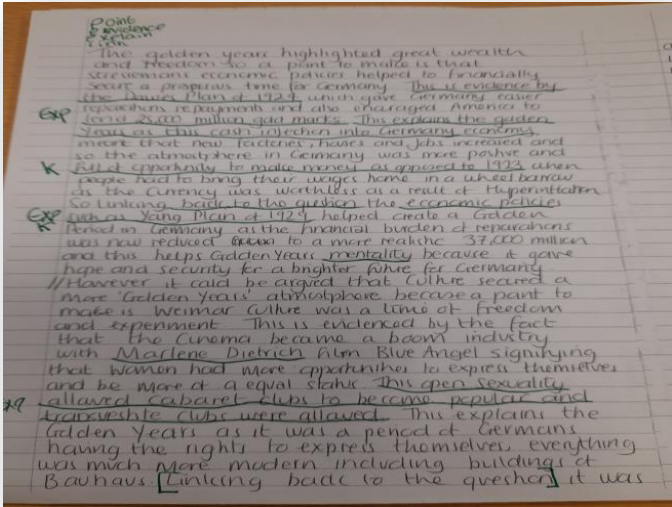 Point
evidence
explain
Link
The golden years highlighted great wealth
and freedom so a point to make is that
stresemans economic policies helped to financially
secure a properus time for Germany. This is evidence by
the Dawes Plan of 1924 which gave Germany easier
Exp reparations repayments and also encharaged America to
lend 25,000 million gold marks. This explains the golden
Years as this cash injection into Germany economy
meant that new factories, houses and jobs increased and
so the atmosphere in Germany was more postive and
K full of oppertunity to make money as opposed to 1923 when
people had to bring their wages home in a wheel barrow
as the currency was worthless as a result of Hyperinflation.
So Linking back to the question the economic policies
Exp such as Yang Plan of 1929 helped create a Golden
K Period in Germany as the financial burden of reparations
was now reduced to a more realistic 37,000 million
and this helps Golden Years mentality because it gave
hope and security for a brighter future for Germany
// However it could be argued that Culture secured a
more 'Golden Years' atmosphere because a point to
make is Weimar Culture was a time of freedom
and experiment. This is evidenced by the fact
that the Cinema became a boom industry
with Marlene Dietrich film Blue Angel signifying
that women had more oppertunities to express themselves
and be more of a equal status. This open sexuality
allowed cabaret clubs to become popular and
transvestite clubs were allowed. This explains the
Golden Years as it was a period of Germans
having the rights to express themselves, everything
was much more modern including buildings of
Bauhaus. [Linking back to the question] it was